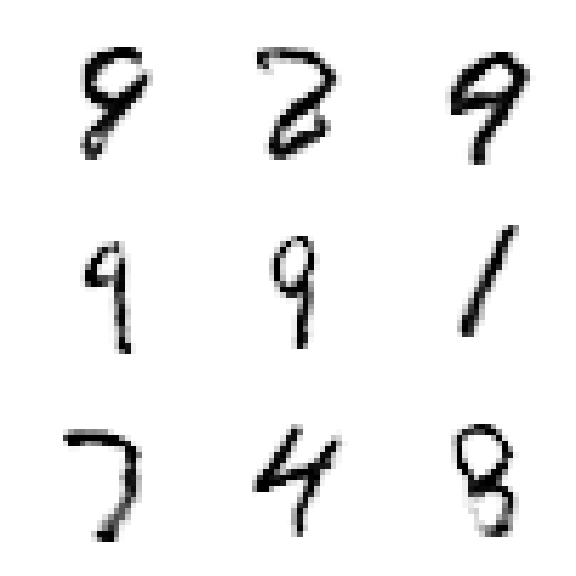 8 2 9
9 9 1
7 4 8